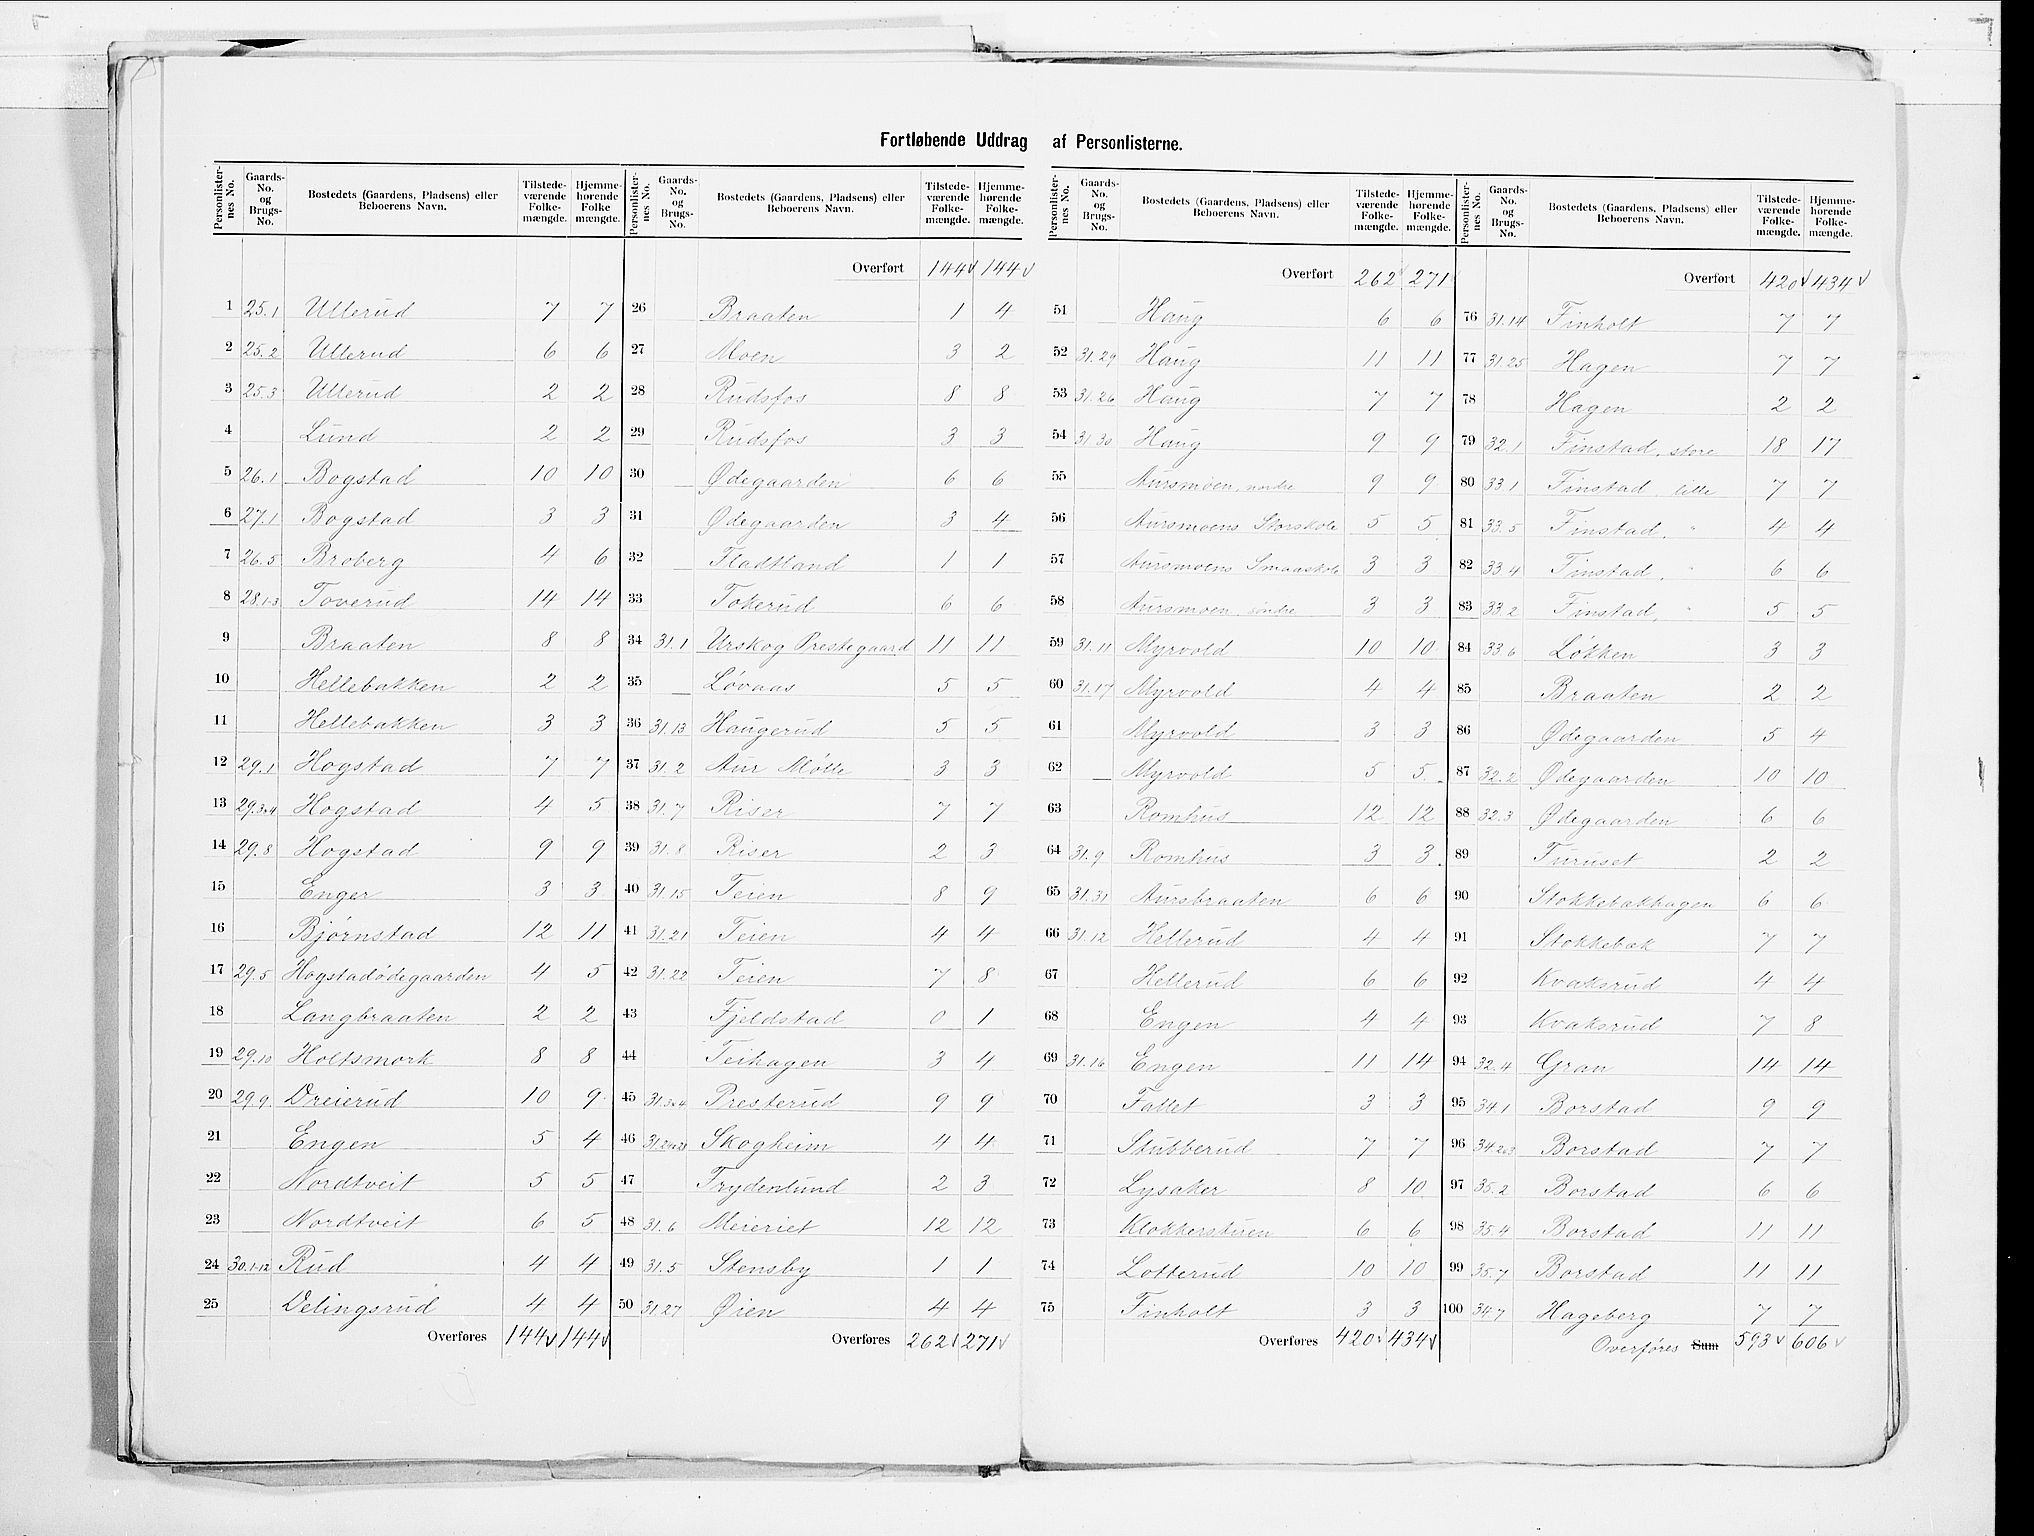 Fortløbende Uddrag af Personlisterne.
Personlister-nes No. | Gaards-No. og Brugs-No. | Bostedets (Gaardens, Pladsens) eller Beboerens Navn. | Tilstede-værende Folke-mængde. | Hjemme-hørende Folke mængde.
1 25.1 Ullerud 7 7
2 25.2 Ullerud 6 6
3 25.3 Ullerud 2 2
4 Lund 2 2
5 26.1 Bogstad 10 10
6 27.1 Bogstad 3 3
7 26.5 Broberg 4 6
8 28.1-3 Toverud 14 14
9 Braaten 8 8
10 Hellebakken 2 2
11 Hellebakken 3 3
12 29.1 Hogstad 7 7
13 29.3&4 Hogstad 4 5
14 29.8 Hogstad 9 9
15 Enger 3 3
16 Bjørnstad 12 11
17 29.5 Hogstadødegaarden 4 5
18 Langbraaten 2 2
19 29.10 Holtsmork 8 8
20 29.9 Dreierud 10 9
21 Engen 5 4
22 Nordtveit 5 5
23 Nordtveit 6 5
24 30.1-12 Rud 4 4
25 Delingsrud 4 4
Overføres 144 144
Personlister-nes No. | Gaards-No. og Brugs-No. | Bostedets (Gaardens, Pladsens) eller Beboerens Navn. | Tilstede-værende Folke-mængde. | Hjemme-hørende Folke-mængde.
Overført 144 144
26 Braaten 1 4
27 Moen 3 2
28 Rudsfos 8 8
29 Rudsfos 3 3
30 Ødegaarden 6 6
31 Ødegaarden 3 4
32 Fladtland 1 1
33 Tokerud 6 6
34 31.1 Urskog Prestegaard 11 11
35 Løvaas 5 5
36 31.13 Haugerud 5 5
37 31.2 Aur Mølle 3 3
38 31.7 Riser 7 7
39 31.8 Riser 2 3
40 31.15 Teien 8 9
41 31.21 Teien 4 4
42 31.22 Teien 7 8
43 Fjeldstad 0 1
44 Teihagen 3 4
45 31.3&4 Presterud 9 9
46 Skogheim 4 4
47 Frydenlund 2 3
48 31.6 Meieriet 12 12
49 31.5 Stensby 1 1
50 31.27 Øien 4 4
Overføres 262 271
Personlister-nes No. | Gaards-No. og Brugs-No. | Bostedets (Gaardens, Pladsens) eller Beboerens Navn. | Tilstede-værende Folke-mængde. | Hjemme-hørende Folke-mængde.
Overført 262 271
51 Haug 6 6
52 31.29 Haug 11 11
53 31.26 Haug 7 7
54 31.30 Haug 9 9
55 Aursmoen, nordre 9 9
56 Aursmoens Storskole 5 5
57 Aursmoens Smaaskole 3 3
58 Aursmoen, søndre 3 3
59 31.11 Myrvold 10 10
60 31.17 Myrvold 4 4
61 Myrvold 3 3
62 Myrvold 5 5
63 Romhus 12 12
64 31.9 Romhus 3 3
65 31.31 Aursbraaten 6 6
66 31.12 Hellerud 4 4
67 Hellerud 6 6
68 Engen 4 4
69 31.16 Engen 11 14
70 Fallet 3 3
71 Stubberud 7 7
72 Lysaker 8 10
73 Klokkerstuen 6 6
74 Lotterud 10 10
75 Finholt 3 3
Overføres 420 434
Personlister-nes No. | Gaards-No. og Brugs-No. | Bostedets (Gaardens, Pladsens) eller Beboerens Navn. | Tilstede-værende Folke-mængde. | Hjemme-hørende Folke-mængde.
Overført 420 434
76 31.14 Finholt 7 7
77 31.25 Hagen 7 7
78 Hagen 2 2
79 32.1 Finstad, store 18 17
80 33.1 Finstad, lille 7 7
81 33.5 Finstad, " 4 4
82 33.4 Finstad, " 6 6
83 33.2 Finstad, " 5 5
84 33.6 Løkken 3 3
85 Braaten 2 2
86 Ødegaarden 5 4
87 32.2 Ødegaarden 10 10
88 32.3 Ødegaarden 6 6
89 Furuset 2 2
90 Stokkebakhagen 6 6
91 Stokkebak 7 7
92 Kvaksrud 4 4
93 Kvaksrud 7 8
94 32.4 Gran 14 14
95 34.1 Borstad 9 9
96 34.2&3 Borstad 7 7
97 35.2 Borstad 6 6
98 35.4 Borstad 11 11
99 35.7 Borstad 11 11
100 34.7 Hageberg 7 7
Overføres Sum 593 606